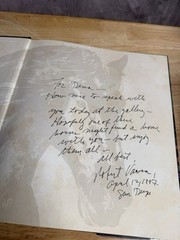 For Dana
How nice to speak with
you today at the gallery —
Hopefully one of these
horses might find a home
with you — but enjoy
them all —
all best,
Robert Vavra,
April 12, 1987
San Diego